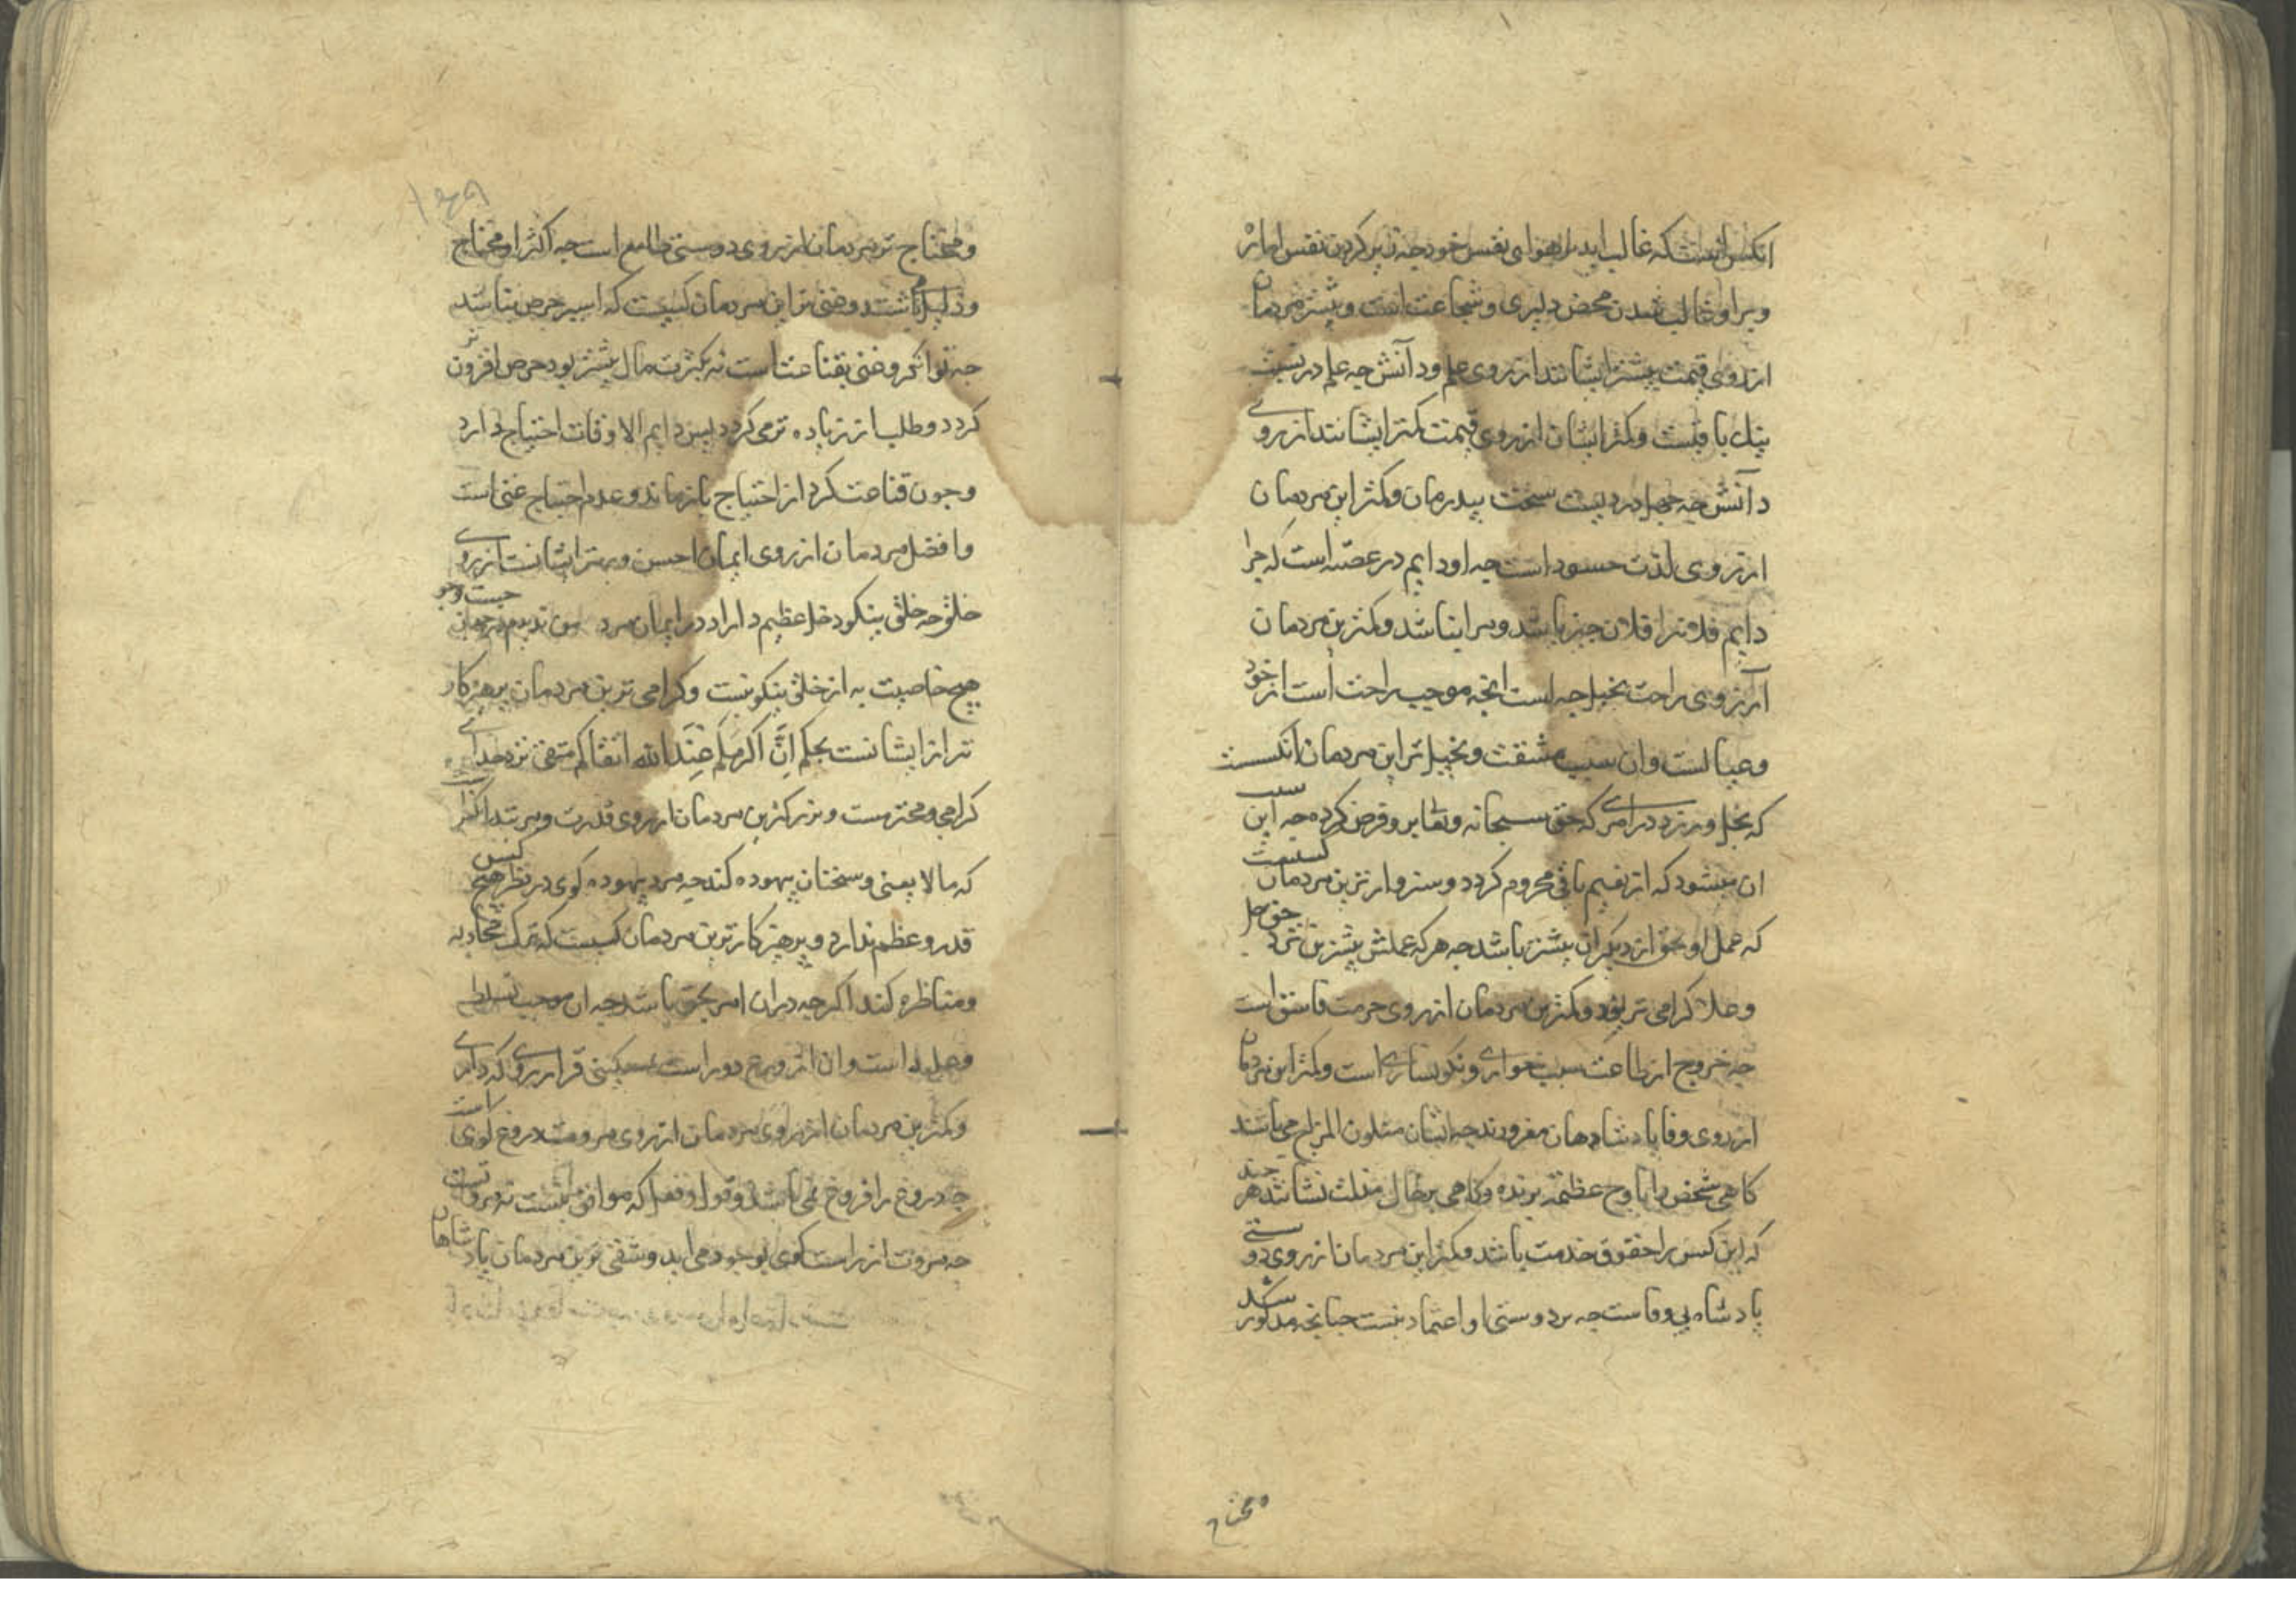 انکس است که غالب اید بر هوای نفس خود چه زیر کردن نفس اماره
و بر او غالب شدن محض دلیری و شجاعت است و بیشتر مردمان
از روی قیمت بیشتر ایشانند از روی علم و دآنش چه علم در
و کمتر ایشان از روی قیمت کمتر ایشانند از روی
دآنش چه جهل دردیست سخت بیدرمان و کمتر این مردمان
از روی لذت حسود است چه او دایم در غصه است که چرا
دایم فلانرا فلان چیز باشد و مرا نباشد و کمترین مردمان
از روی راحت بخیل چه است انچه موجب راحت است از خود
و عیالست وان سبب مشقت و بخیل تر این مردمان انکسست
که بخل ورزد در امری که حق سبحانه و تعا بر و فرض کرده چه این سبب
ان میشود که از نعیم باقی محروم کردد و سزوارترین مردمان کسیست
که عمل او بحق از دیکران بیشتر باشد چه هر که عملش بیشترین نزد حق جل
وعلا کرامی تر بود و کمترین مردمان از روی حرمت فاسق است
چه خروج از طاعت سبب خواری و نکونساری است و کمتر این مردمان
از روی وفا پادشاهان مغرورند چه ایشان متلون المزاج می باشند
کاهی شخص را باوج عظمت برنده و کاهی بر خاک مذلت نشانند هر چند
که این کس را حقوق خدمت باشد و کمتر این مردمان از روی دوستی
پادشاه بی وفاست چه بر دوستی او اعتماد نیست چنانچه مذکور شد
و محتاج
و محتاج تر مردمان از روی دوستی طامع است چه اکثر او محتاج
و ذلیل باشد و غنی تر این مردمان کسیست که اسیر حرص نباشد
چه توانکر و غنی بقناعت است نه بکثرت مال بیشتر بود حرص افزون تر
کردد و طلب از زیاده تر می کردد پس دایم الاوقات احتیاج دارد
و چون قناعت کرد از احتیاج باز ماند و عدم احتیاج غنی است
و افضل مردمان از روی ایمان احسن و بهتر ایشانست از روی
خلق چه خلق نیکو دخل عظیم دارد در ایمان مرد من ندیدم در جهان جست و جو
هیچ خاصیت به از خلق نیکو نیست و کرامی ترین مردمان پرهیزکار
تر از ایشانست بحکم اِنَّ اکرمکم عِنْدَ الله اتقاکم متقی نزد خدای
کرامی و محترمست و بزرکترین مردمان از روی قدرت و مرتبه
که مالا یعنی و سخنان بیهوده کند چه مرد بیهوده کوی در نظر هیچ کس
قدر و عظم ندارد و پرهیزکارترین مردمان کسیست که ترک مجادله
و مناظره کند اکرچه دران امر بحق باشد چه ان موجب تسلط
است وان از ورع دور است
و کمترین مردمان از روی مروت دروغ کوی است
چه دروغ را فروغ نمی باشد و قول او فعل که موافق نیست نه مروتست
چه مروت از راست کوی بوجود می اید و شقی ترین مردمان پادشاهان